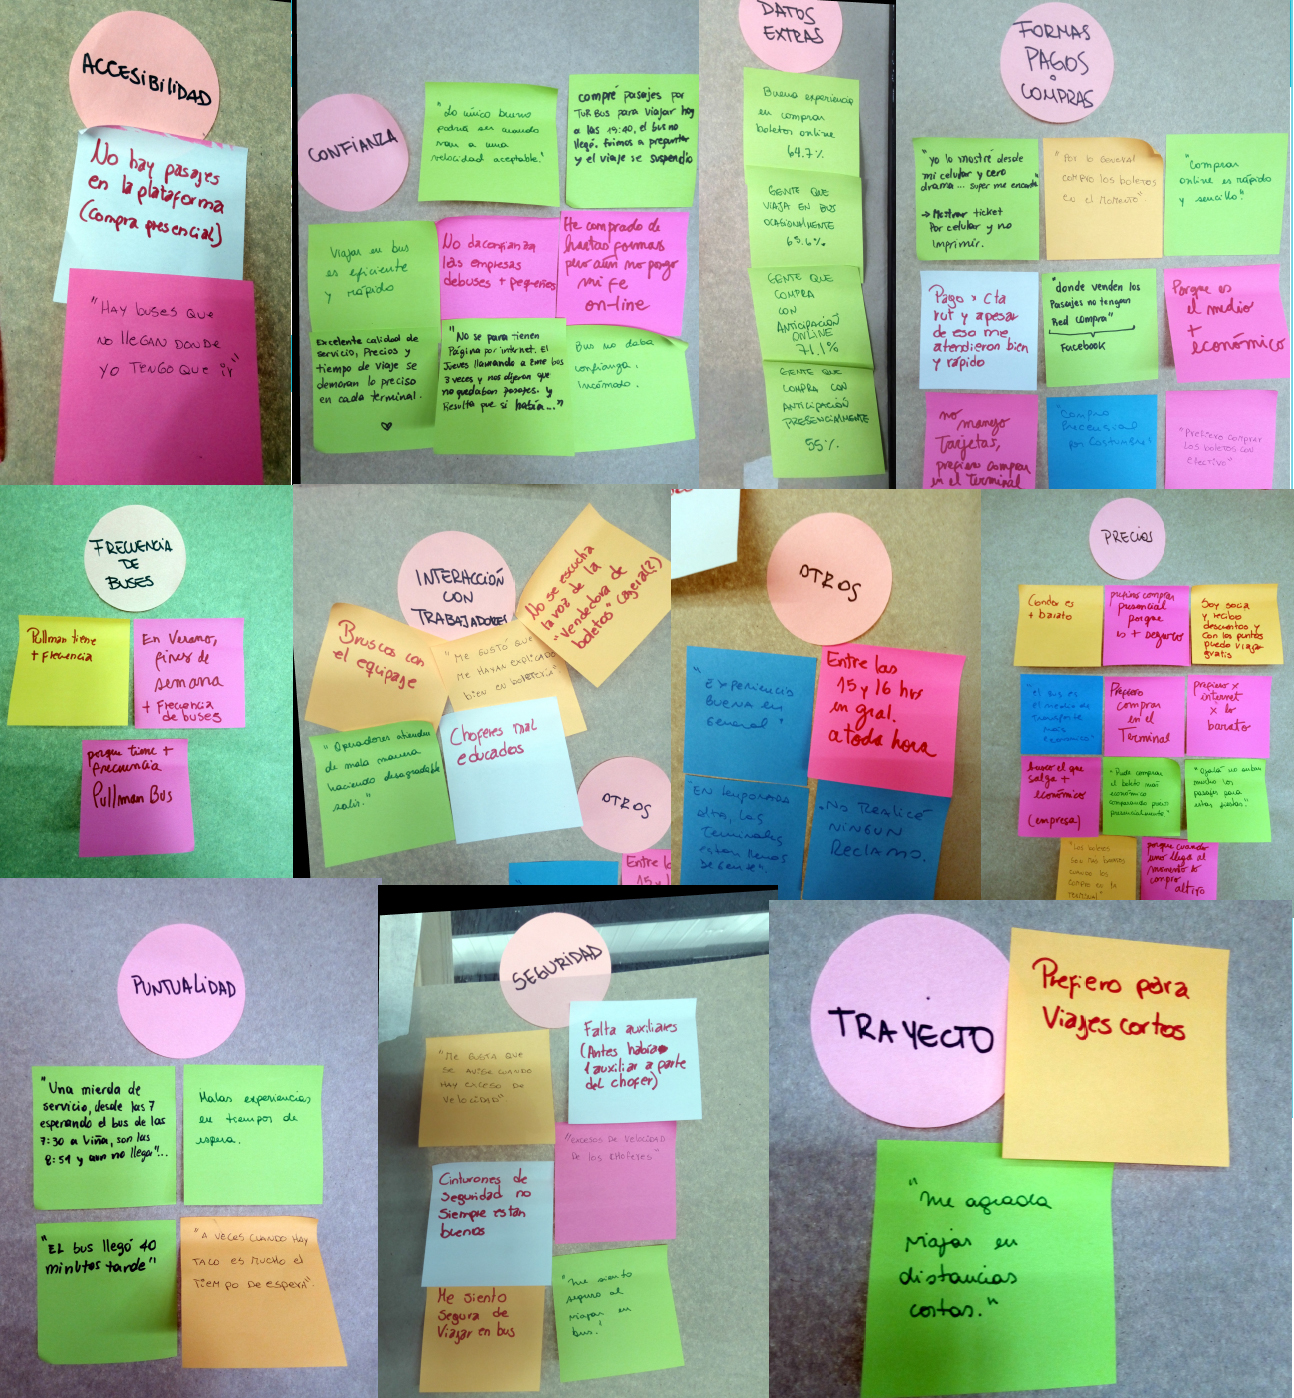 ACCESIBILIDAD
No hay pasajes
en la plataforma
(compra presencial)
"HAY BUSES QUE
NO LLEGAN DONDE
YO TENGO QUE IR"
CONFIANZA
"Lo único bueno
podría ser cuando
van a una
velocidad aceptable."
compré pasajes por
TUR BUS para viajar hoy
a las 19:40, el bus no
llegó. fuimos a preguntar
y el viaje se suspendio
Viajar en bus
es eficiente
y rápido
No daconfianza
las empresas
debuses + pequeños
He comprado de
hartas formas
pero aún no pongo
mi fe
on-line
Excelente calidad de
servicio, Precios y
tiempo de viaje se
demoran lo preciso
en cada terminal.
"No se para tienen
Página por internet. El
Jueves llamando a eme bus
3 veces y nos dijeron que
no quedaban pasajes. y
Resulta que si había..."
Bus no daba
confianza.
Incómodo.
DATOS
EXTRAS
Buena experiencia
en comprar
boletos online
64.7%
GENTE QUE
VIAJA EN BUS
OCASIONALMENTE
65.6%
GENTE QUE
COMPRA
CON
ANTICIPACIÓN
ONLINE
71.1%
GENTE QUE
COMPRA CON
ANTICIPACIÓN
PRESENCIALMENTE
55%
FORMAS
PAGOS
O
COMPRAS
"yo lo mostré desde
mi celular y cero
drama... super me encanta"
→ Mostrar ticket
Por celular y no
imprimir.
"Por lo General
COMPRO los boletos
en el MOMENTO"
"Comprar
online es rápido
y sencillo."
Pago x cta
rut y apesar
de eso me
atendieron bien
y rápido
"donde venden los
Pasajes no tengan
Red compra"
Facebook
Porque es
el medio
+
económico
no
manejo
Tarjetas,
prefiero comprar
en el Terminal
"Compro
Presencial
por costumbre"
"Prefiero comprar
los boletos con
efectivo"
FRECUENCIA
DE
BUSES
Pullman tiene
+ Frecuencia
En Verano,
fines de
semana
+ Frecuencia
de buses
porque tiene +
frecuencia
Pullman Bus
INTERACCIÓN
CON
TRABAJADORES
No se escucha
la voz de la
"Vendedora de
boletos" cajera(?)
Bruscos con
el equipaje
"ME GUSTÓ QUE
ME HAYAN EXPLICADO
bien EN boletería"
"Operadores atienden
de mala manera
haciendo desagradable
salir."
Choferes mal
educados
OTROS
Entre la
15 y 1
OTROS
"EXPERIENCIA
BUENA en
General"
Entre las
15 y 16 hrs
en gral.
a toda hora
"EN temporada
alta, las
Terminales
estan llenos
De Gente".
NO Realicé
NINGUN
RECLAMO.
PRECIOS
Condor es
+ barato
prefiero comprar
presencial
porque
es + seguro
Soy socia
y recibo
descuentos y
con los puntos
puedo viajar
gratis
"El bus es
el medio de
transporte
más
económico"
Prefiero
comprar
en el
Terminal
prefiero x
internet
x lo
barato
busco el que
salga +
económico
(empresa)
"Pude comprar
el boleto más
económico
comparando precios
presencialmente"
"Ojalá no suban
mucho los
pasajes para
estas fiestas."
"Los boletos
SEA MAS BARATOS
CUANDO LOS
COMPRE EN LA
TERMINAL"
porque cuando
uno llega al
momento lo
compro
altiro
PUNTUALIDAD
"Una mierda de
servicio, desde las 7
esperando el bus de las
7:30 a Viña, son las
8:54 y aun no llega"...
Malas experiencias
en tiempos de
espera.
"EL bus llegó 40
minutos tarde"
"A VECES CUANDO HAY
TACO ES MUCHO el
TIEMPO DE ESPERA".
SEGURIDAD
"ME GUSTA QUE
SE AVISE CUANDO
HAY EXCESO DE
VELOCIDAD"
Falta auxiliares
(Antes había
1 auxiliar a parte
del chofer)
"EXCESOS DE VELOCIDAD
De los CHOFERES"
Cinturones de
Seguridad no
Siempre están
buenos
Me siento
Segura de
Viajar en bus
"Me siento
seguro al
viajar en
bus."
TRAYECTO
Prefiero para
Viajes cortos
"Me agrada
viajar en
distancias
cortas."